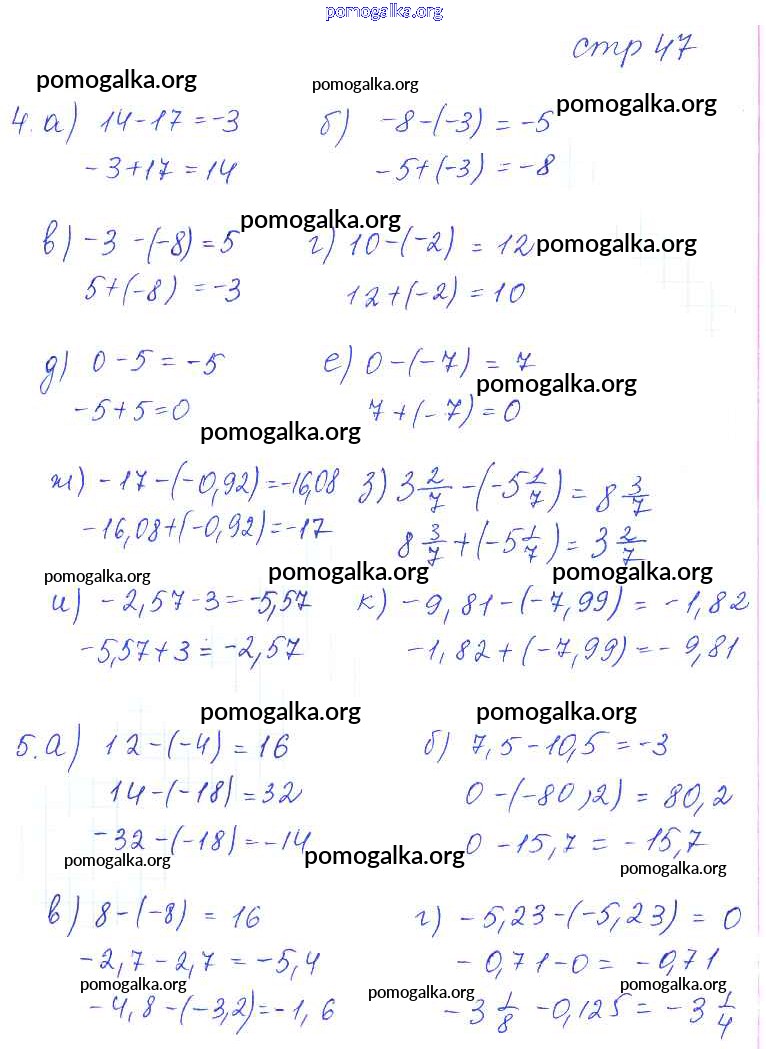 pomogalka.org
стр 47
pomogalka.org pomogalka.org pomogalka.org
4. а) 14-17 = -3 б) -8-(-3) = -5
-3+17 = 14 -5+(-3) = -8
pomogalka.org
в) -3 -(-8) = 5 г) 10-(-2) = 12 pomogalka.org
5+(-8) = -3 12+(-2) = 10
д) 0-5 = -5 е) 0-(-7) = 7
pomogalka.org
-5+5=0 7+(-7) = 0
pomogalka.org
ж) -17-(-0,92)=-16,08 з) 3 2/7 -(-5 1/7) = 8 3/7
-16,08+(-0,92)=-17 8 3/7 +(-5 1/7) = 3 2/7
pomogalka.org pomogalka.org pomogalka.org
и) -2,57-3=-5,57 к) -9,81-(-7,99) = -1,82
-5,57+3 = -2,57 -1,82+(-7,99) = -9,81
pomogalka.org pomogalka.org
5. а) 12-(-4) = 16 б) 7,5-10,5=-3
14-(-18) = 32 0-(-80,2) = 80,2
-32-(-18)=-14 0-15,7 = -15,7
pomogalka.org pomogalka.org pomogalka.org
в) 8-(-8) = 16 г) -5,23-(-5,23) = 0
-2,7-2,7 = -5,4 -0,71-0 = -0,71
pomogalka.org pomogalka.org pomogalka.org
-4,8-(-3,2)=-1,6 -3 1/8 -0,125 = -3 1/4